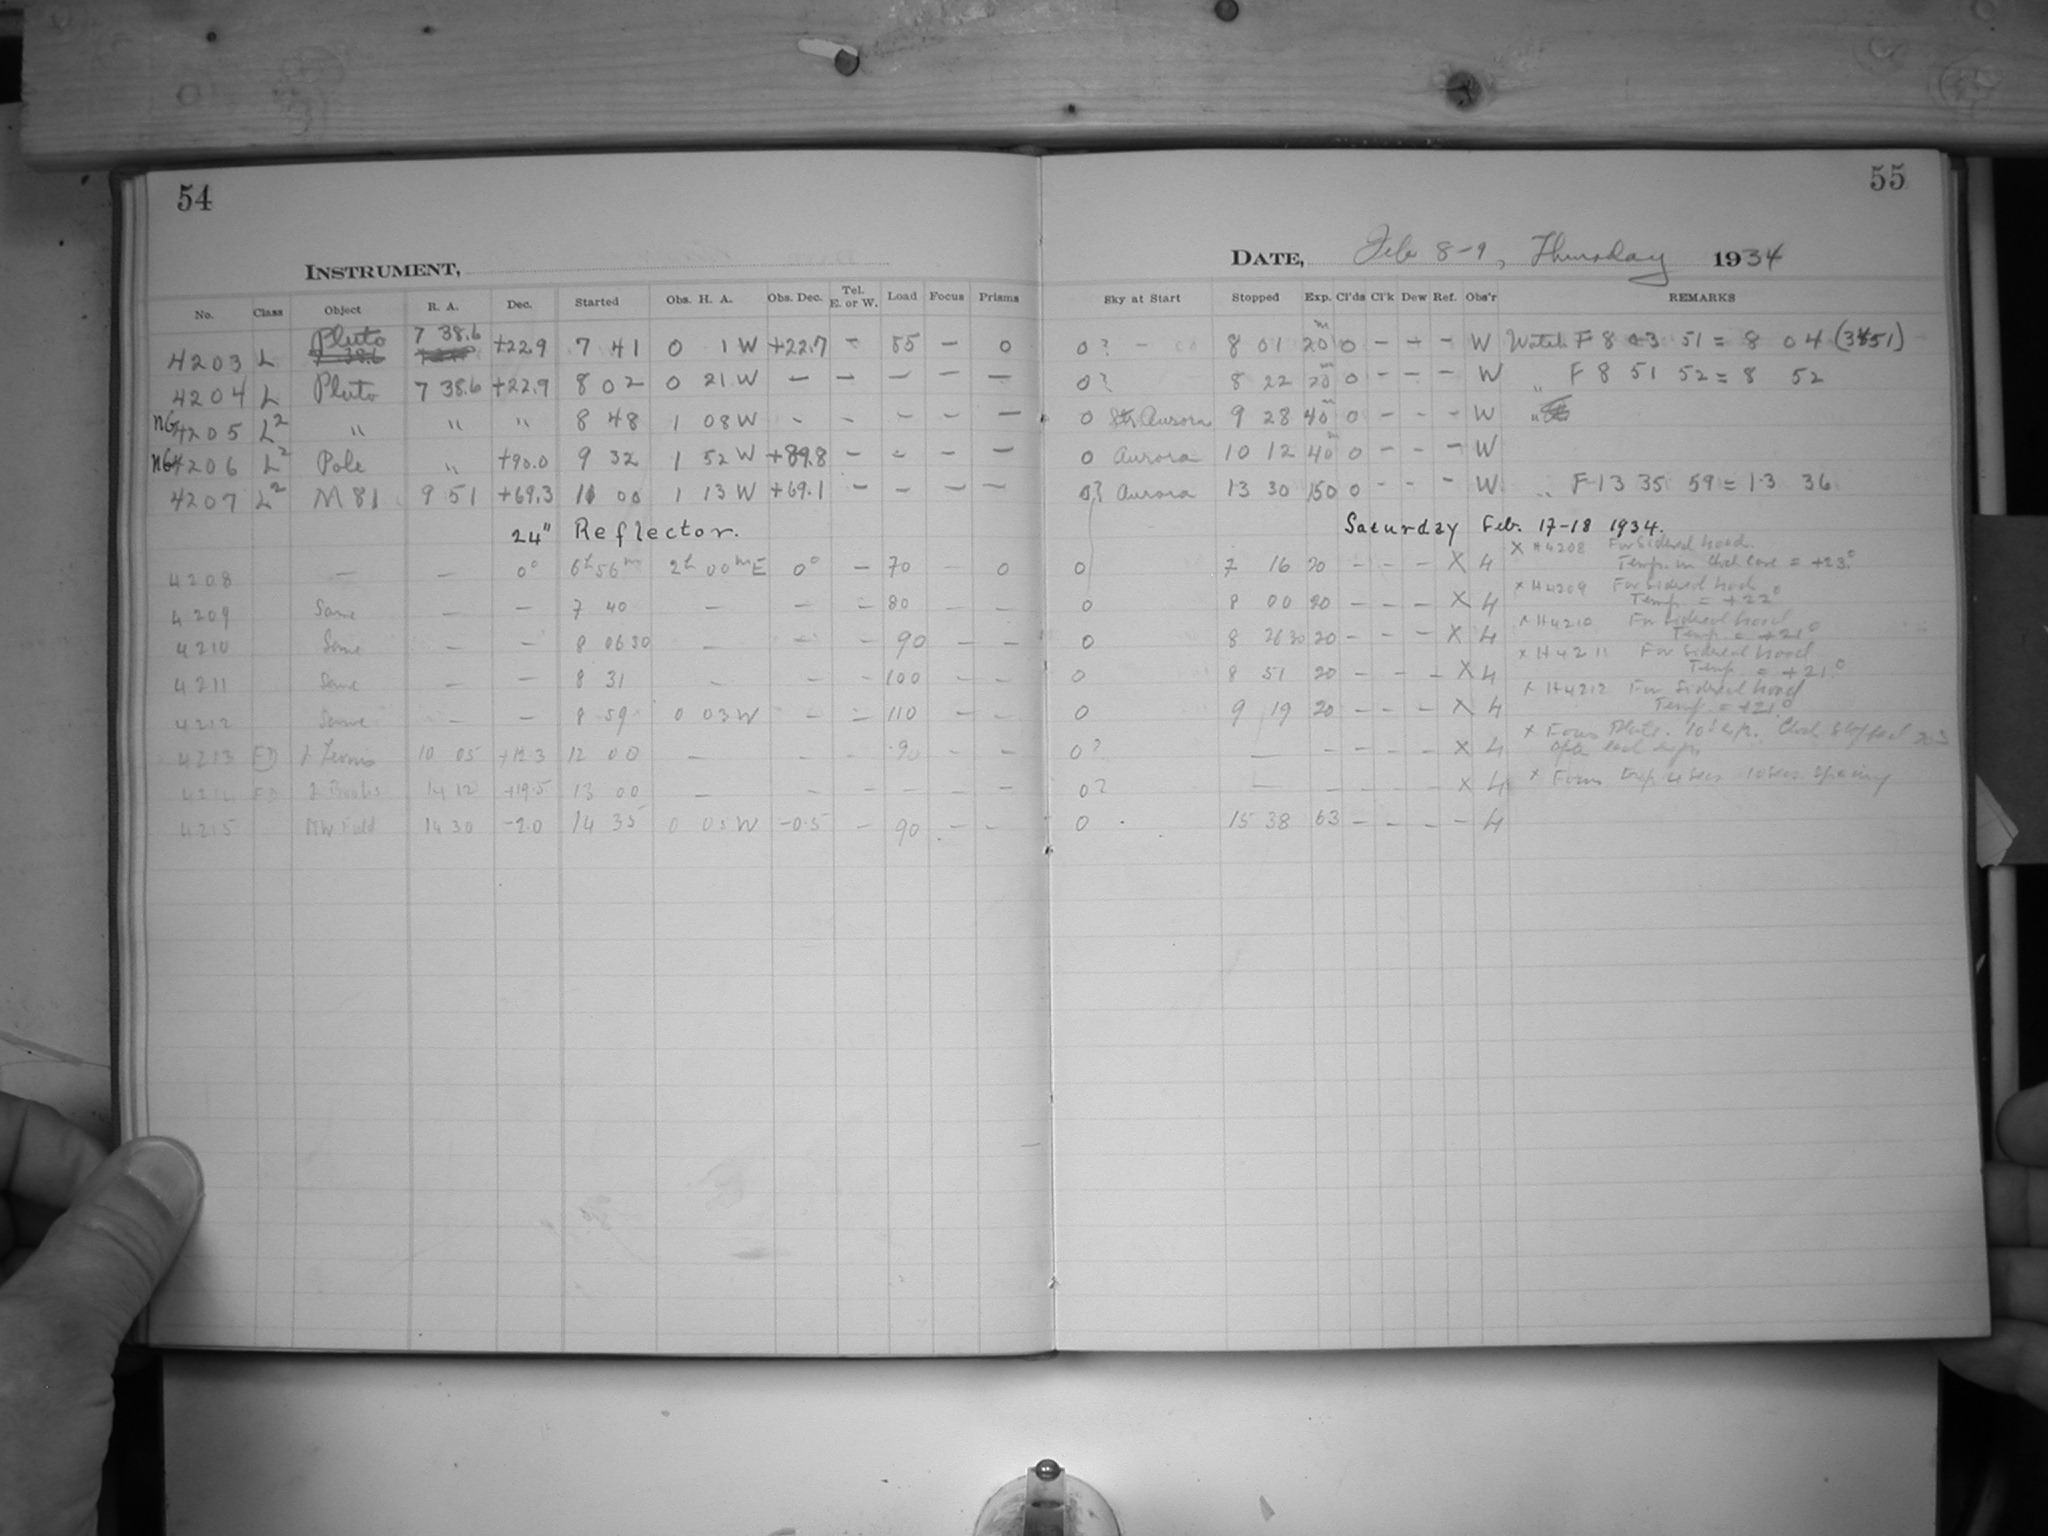 54
55
INSTRUMENT,
DATE, Feb 8-9, Thursday 1934
No. Class Object R. A. Dec. Started Obs. H. A. Obs. Dec. Tel. E. or W. Load Focus Prisms Sky at Start Stopped Exp. Cl'ds Cl'k Dew Ref. Obs'r REMARKS
4203 L Pluto 7 38.6 +22.9 7 41 0 1 W +22.7 - 85 - 0 0? - 8 01 20m 0 - - - W Watch F 8 03 51 = 8 04 (3 51)
4204 L Pluto 7 38.6 +22.9 8 02 0 21 W - - - - - 0? 8 22 20m 0 - - - W " F 8 51 52 = 8 52
NG 4205 L2 " " " 8 48 1 08 W - - - - - 0 Aurora 9 28 40m 0 - - - W "
NG 4206 L2 Pole " +90.0 9 32 1 52 W +89.8 - - - - 0 Aurora 10 12 40m 0 - - - W
4207 L2 M 81 9 51 +69.3 11 00 1 13 W +69.1 - - - - 0? Aurora 13 30 150 0 - - - W " F 13 35 59 = 13 36
24" Reflector. Saturday Feb. 17-18 1934.
4208 - - 0° 6h 56m 2h 00m E 0° - 70 - 0 0 7 16 20 - - - X 4 X H4208 For Sidereal hood.
Temp. in Clock Case = +23°
4209 Same - - 7 40 - - - 80 - - 0 8 00 20 - - - X 4 X H4209 For Sidereal hood
Temp. = +22°
4210 Same - - 8 06 30 - - - 90 - - 0 8 26 30 20 - - - X 4 X H4210 For Sidereal hood
Temp. = +21°
4211 Same - - 8 31 - - - 100 - - 0 8 51 20 - - - X 4 X H4211 For Sidereal hood
Temp = +21°
4212 Same - - 8 59 0 03 W - - 110 - - 0 9 19 20 - - - X 4 X H4212 For Sidereal hood
Temp. = +21°
4213 FD Leonis 10 05 +12.3 12 00 - - - 90 - - 0? - - - - X 4 X Focus Plate. 10s exp. Clock stopped
after each exp
4214 FD Bootis 14 12 +19.5 13 00 - - - - - - 0? - - - - X 4 X Focus Exp 4 secs 10 secs spacing
4215 MW Field 14 30 -2.0 14 35 0 05 W -0.5 - 90 - - 0 15 38 63 - - - - 4